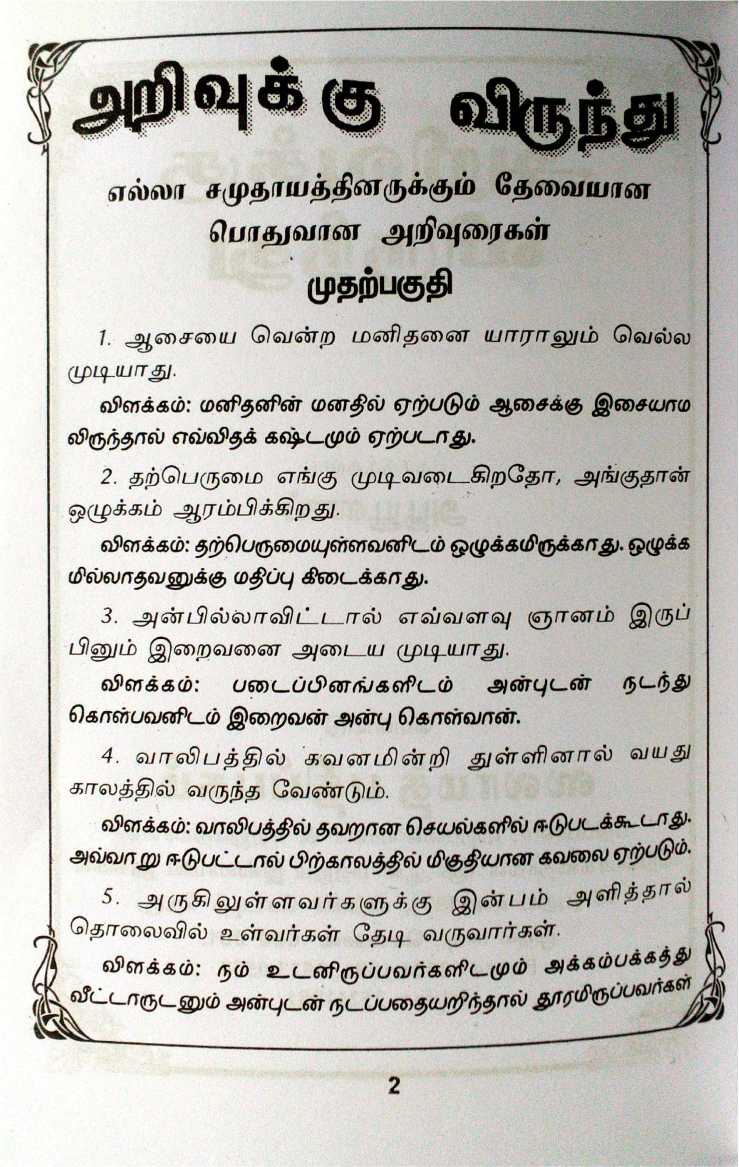 அறிவுக்கு விருந்து
எல்லா சமுதாயத்தினருக்கும் தேவையான
பொதுவான அறிவுரைகள்
முதற்பகுதி
1. ஆசையை வென்ற மனிதனை யாராலும் வெல்ல
முடியாது.
விளக்கம்: மனிதனின் மனதில் ஏற்படும் ஆசைக்கு இசையாம
லிருந்தால் எவ்விதக் கஷ்டமும் ஏற்படாது.
2. தற்பெருமை எங்கு முடிவடைகிறதோ, அங்குதான்
ஒழுக்கம் ஆரம்பிக்கிறது.
விளக்கம்: தற்பெருமையுள்ளவனிடம் ஒழுக்கமிருக்காது. ஒழுக்க
மில்லாதவனுக்கு மதிப்பு கிடைக்காது.
3. அன்பில்லாவிட்டால் எவ்வளவு ஞானம் இருப்
பினும் இறைவனை அடைய முடியாது.
விளக்கம்: படைப்பினங்களிடம் அன்புடன் நடந்து
கொள்பவனிடம் இறைவன் அன்பு கொள்வான்.
4. வாலிபத்தில் கவனமின்றி துள்ளினால் வயது
காலத்தில் வருந்த வேண்டும்.
விளக்கம்: வாலிபத்தில் தவறான செயல்களில் ஈடுபடக்கூடாது.
அவ்வாறு ஈடுபட்டால் பிற்காலத்தில் மிகுதியான கவலை ஏற்படும்.
5. அருகிலுள்ளவர்களுக்கு இன்பம் அளித்தால்
தொலைவில் உள்வர்கள் தேடி வருவார்கள்.
விளக்கம்: நம் உடனிருப்பவர்களிடமும் அக்கம்பக்கத்து
வீட்டாருடனும் அன்புடன் நடப்பதையறிந்தால் தூரமிருப்பவர்கள்
2